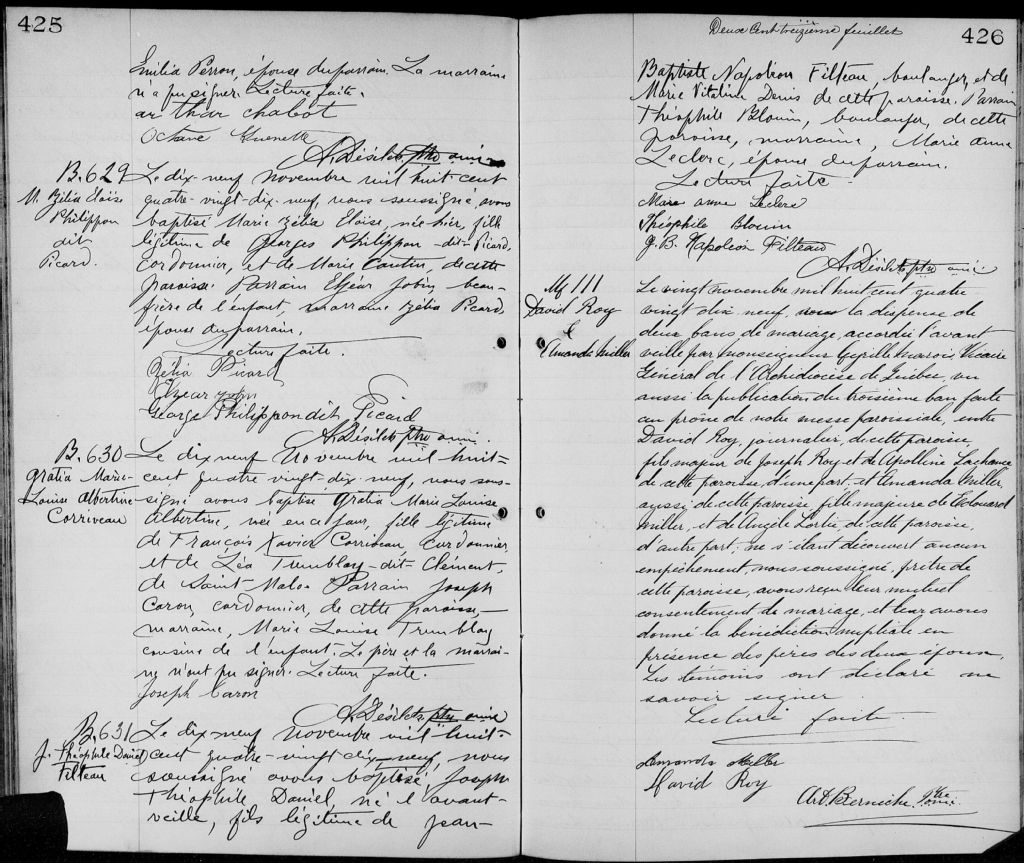 425
Emilia Perron, épouse du parrain. La marraine
n'a pu signer. Lecture faite.
arthur chabot
Octave Guenette
A. Désilets ptre
B. 629
M. Zélia Éloise
Philippon
dit
Picard.
Le dix-neuf novembre mil huit cent
quatre-vingt-dix-neuf, nous soussigné avons
baptisé Marie Zélia Eloise, née hier, fille
légitime de Georges Philippon-dit-Picard,
cordonnier, et de Marie Cantin, de cette
paroisse. Parrain Elzéar Jobin, beau-
frère de l'enfant, marraine Zélia Picard,
épouse du parrain.
Lecture faite.
Zélia Picard
Elzear Jobin
George Philippon dit Picard
A. Désilets ptre
B. 630
Gratia Marie-
Louise Albertine
Corriveau
Le dix-neuf Novembre mil huit-
cent quatre-vingt-dix-neuf, nous sous-
signé avons baptisé Gratia Marie Louise
Albertine, née en ce jour, fille légitime
de François Xavier Corriveau, cordonnier,
et de Léa Tremblay-dit-Clément,
de Saint-Malo. Parrain Joseph
Caron, cordonnier, de cette paroisse,
marraine, Marie Louise Tremblay
cousine de l'enfant. Le père et la marrai-
ne n'ont pu signer. Lecture faite.
Joseph Caron
A. Désilets ptre
B. 631
J. Théophile Daniel
Filteau
Le dix-neuf novembre mil huit-
cent quatre-vingt-dix-neuf, nous
soussigné avons baptisé Joseph
Théophile Daniel, né l'avant-
veille, fils légitime de Jean-
Deux Cent treizième feuillet
426
Baptiste Napoléon Filteau, boulanger, et de
Marie Vitaline Denis de cette paroisse. Parrain
Théophile Blouin, boulanger, de cette
paroisse, marraine, Marie anne
Leclerc, épouse du parrain.
Lecture faite.
Marie anne Leclerc
Théophile Blouin
J. B. Napoléon Filteau
A. Désilets ptre
M 111
David Roy
&
Amanda Miller
Le vingt novembre mil huit cent quatre
vingt dix-neuf, vu la dispense de
deux bans de mariage, accordée l'avant
veille par Monseigneur Cyrille Marois Vicaire
Général de l'Archidiocèse de Québec, vu
aussi la publication du troisième ban faite
au prône de notre messe paroissiale, entre
David Roy, journalier, de cette paroisse,
fils majeur de Joseph Roy et de Apolline Lachance
de cette paroisse, d'une part, et Amanda Miller,
aussi de cette paroisse, fille majeure de Edouard
Miller, et de Angèle Lortie, de cette paroisse,
d'autre part; ne s'étant découvert aucun
empêchement, nous soussigné, prêtre de
cette paroisse, avons reçu leur mutuel
consentement de mariage, et leur avons
donné la bénédiction nuptiale en
présence des pères des deux époux.
Les témoins ont déclaré ne
savoir signer.
Lecture faite.
Amanda Miller
David Roy
Art. Berniche, Ptre